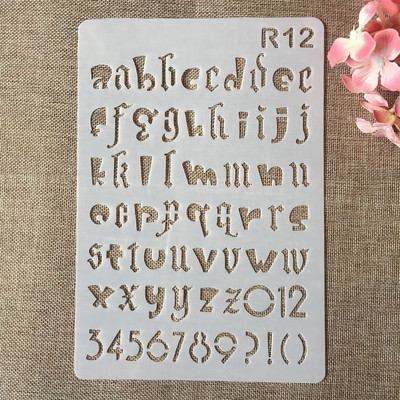 R12
aabbccddee
effgghhiijj
kklllmmnn
ooppqqrrs
sttuuvvww
xxyyzz012
3456789?!()